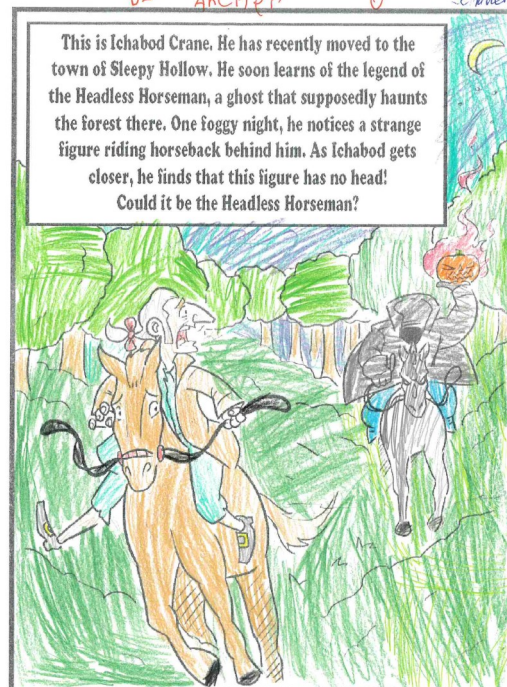 This is Ichabod Crane. He has recently moved to the
town of Sleepy Hollow. He soon learns of the legend of
the Headless Horseman, a ghost that supposedly haunts
the forest there. One foggy night, he notices a strange
figure riding horseback behind him. As Ichabod gets
closer, he finds that this figure has no head!
Could it be the Headless Horseman?